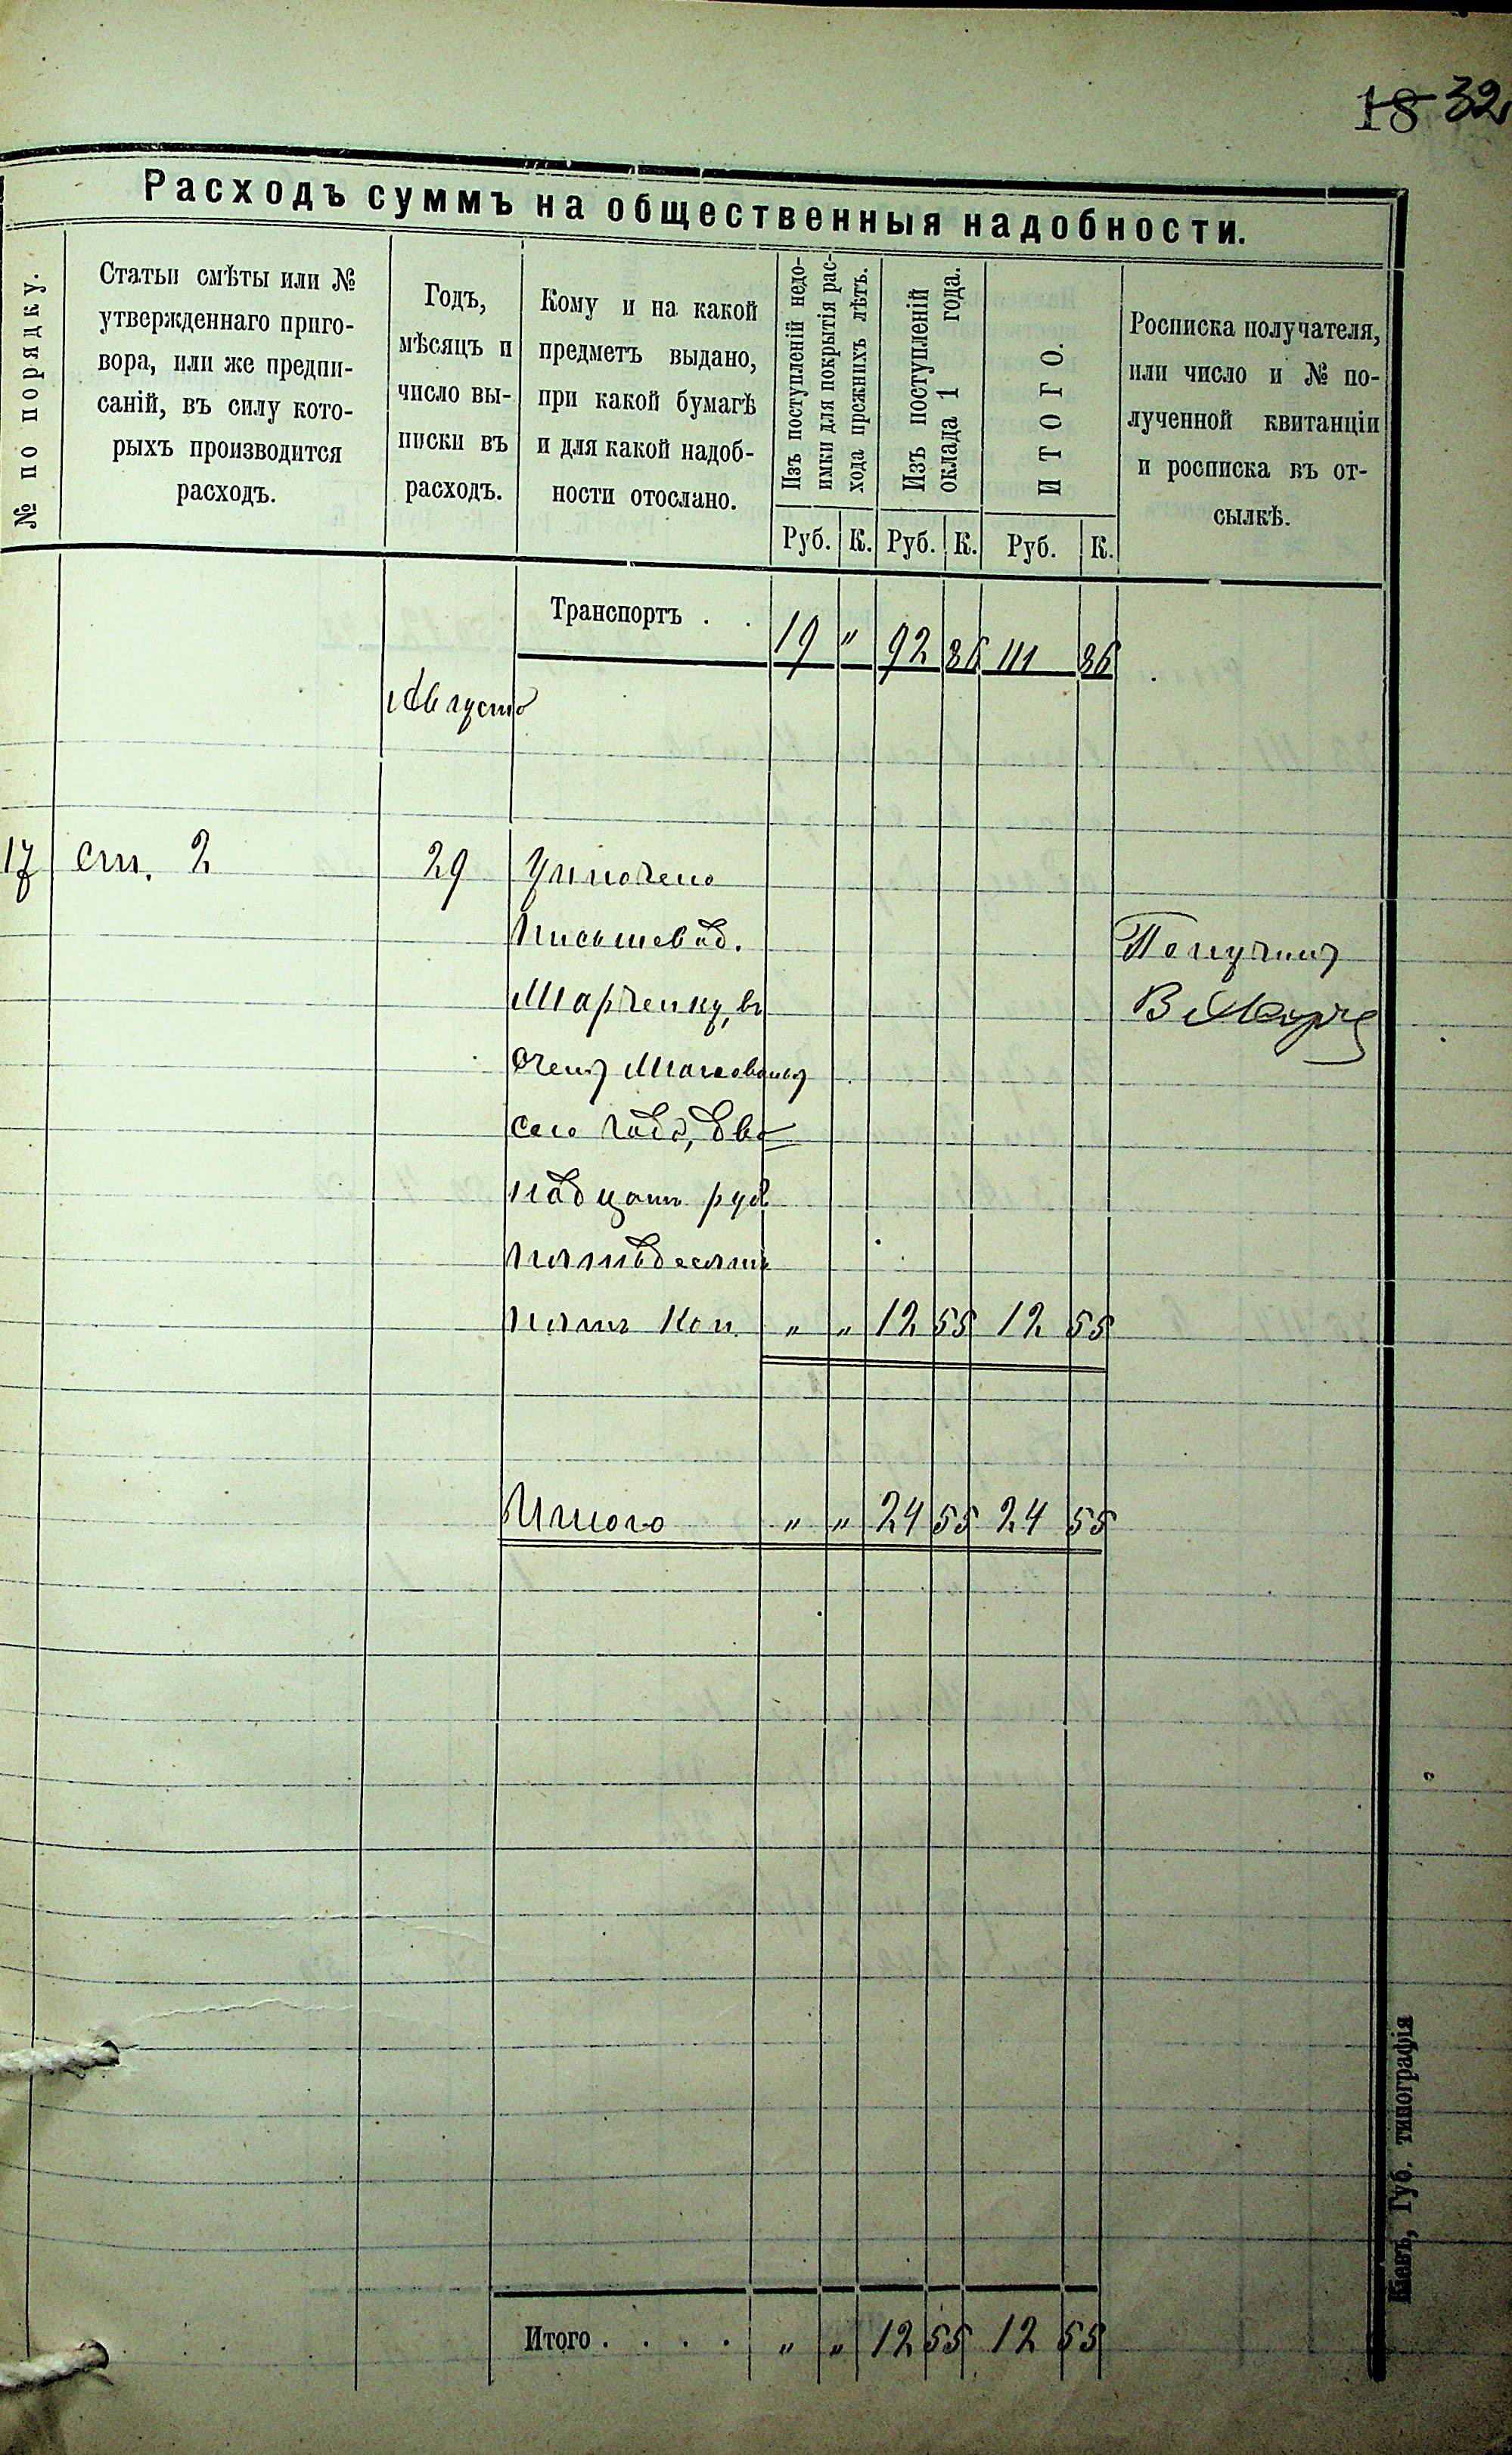 18 32
Расходъ суммъ на общественныя надобности.
№ по порядку.
Статьи смѣты или №
утвержденнаго приго-
вора, или же предпи-
саній, въ силу кото-
рыхъ производится
расходъ.
Годъ,
мѣсяцъ и
число вы-
писки въ
расходъ.
Кому и на какой
предметъ выдано,
при какой бумагѣ
и для какой надоб-
ности отослано.
Изъ поступленій недо-
имки для покрытія рас-
хода прежнихъ лѣтъ.
Изъ поступленій
оклада 1 года.
ИТОГО.
Росписка получателя,
или число и № по-
лученной квитанціи
и росписка въ от-
сылкѣ.
Руб. К. Руб. К. Руб. К.
Транспортъ . . 19 " 92 86 111 86
Августъ
17 ст. 2 29 Уплочено
письмовод.
Получилъ
Марченку, въ
В Марче
счетъ жалованья
сего года, две
надцать руб
пятьдесятъ
пять коп. " " 12 55 12 55
Итого " " 24 55 24 55
Итого . . . . " " 12 55 12 55
Кіевъ, Губ. типографія